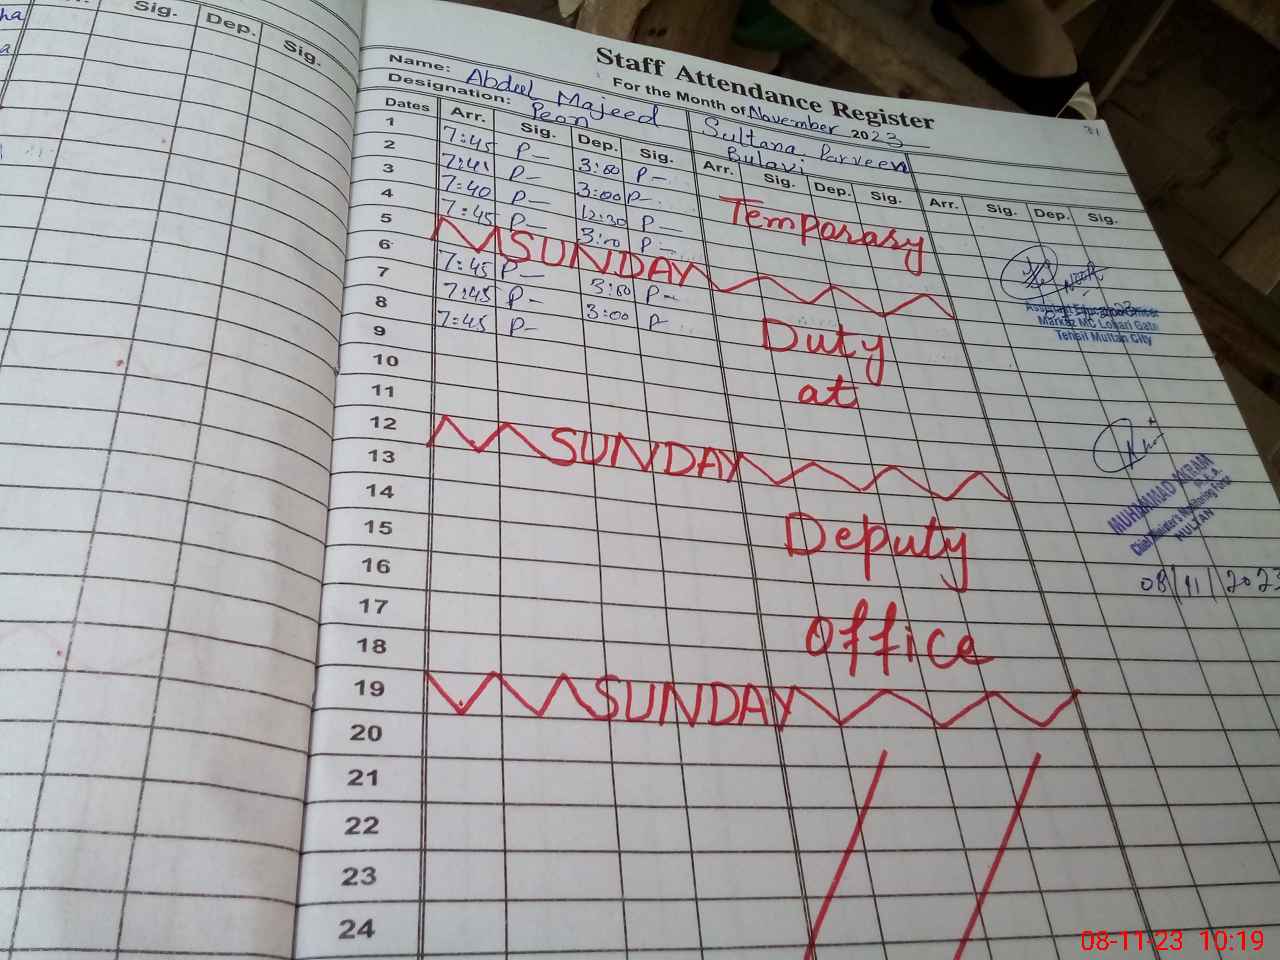 Sig. Dep. Sig.
Staff Attendance Register
For the Month of November 2023
31
Name: Abdul Majeed Sultana Parveen
Designation: Peon Bulavi
Dates Arr. Sig. Dep. Sig. Arr. Sig. Dep. Sig. Arr. Sig. Dep. Sig.
1 7:45 P- 3:00 P-
2 7:41 P- 3:00 P-
3 7:40 P- 12:30 P-
4 7:45 P- 3:00 P-
Temparary
5 SUNDAY
6 7:45 P- 3:00 P-
7 7:45 P- 3:00 P
8 7:45 P-
Duty
9
10
at
11
12 SUNDAY
13
14
15
Deputy
16
17
18
office
19 SUNDAY
20
21
22
23
24
Assistant Education Officer
Markaz MC Lohari Gate
Tehsil Multan City
MUHAMMAD AKRAM
MULTAN
08/11/2023
08-11-23 10:19